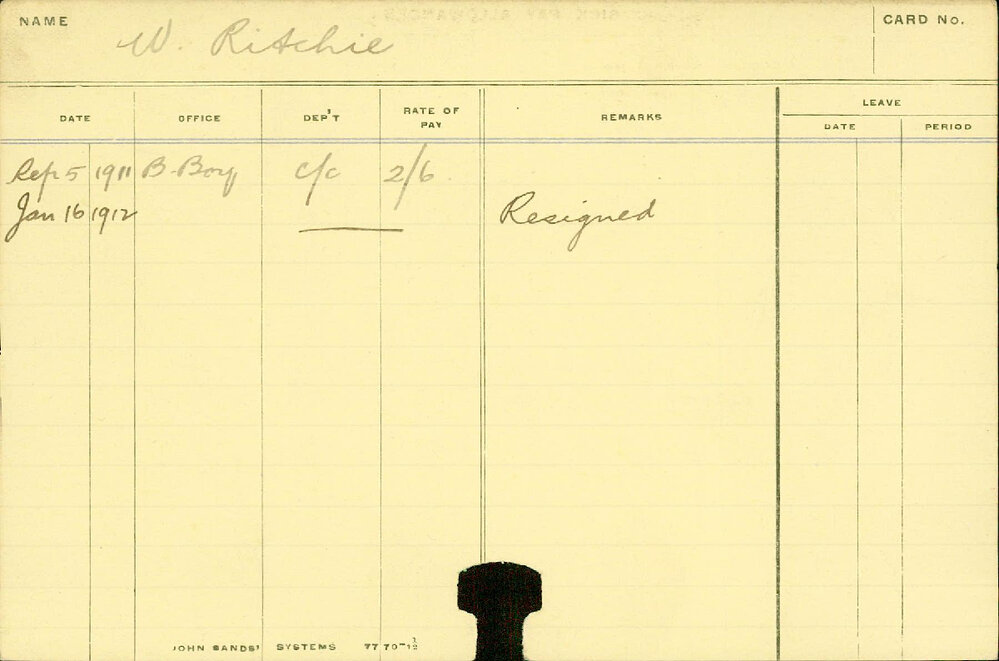 NAME W. Ritchie CARD No.
LEAVE
DATE OFFICE DEP'T RATE OF PAY REMARKS DATE PERIOD
Sep 5 1911 B. Boy c/c 2/6
Jan 16 1912 Resigned
JOHN SANDS' SYSTEMS